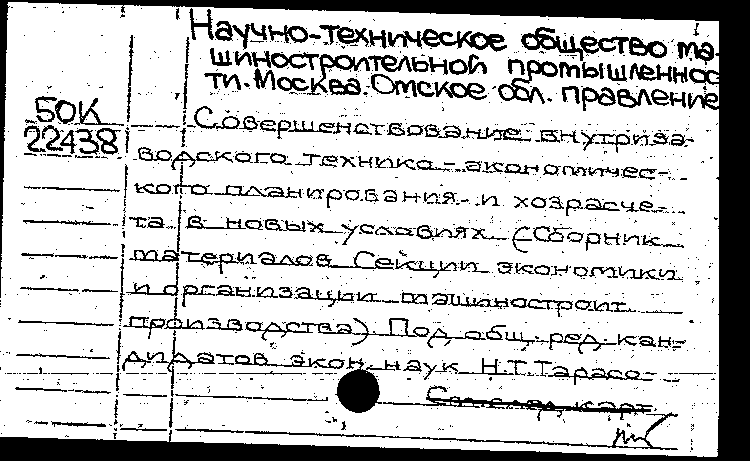 Научно-техническое общество ма-
шиностроительной промышленнос
ти. Москва. Омское обл. правление
50К
22438
Совершенствование внутриза-
водского технико-экономичес-
кого планирования и хозрасче-
та в новых условиях (Сборник
материалов Секции экономики
и организации машиностроит.
производства). Под общ. ред. кан-
дидатов экон. наук Н.Т.Тарасо-
См. след. карт